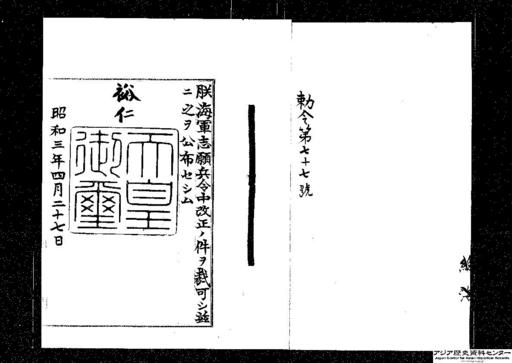 勅令第七十七號
朕海軍志願兵令中改正ノ件ヲ裁可シ並
ニ之ヲ公布セシム
裕仁
天皇
御璽
昭和三年四月二十七日
アジア歴史資料センター
Japan Center for Asian Historical Records